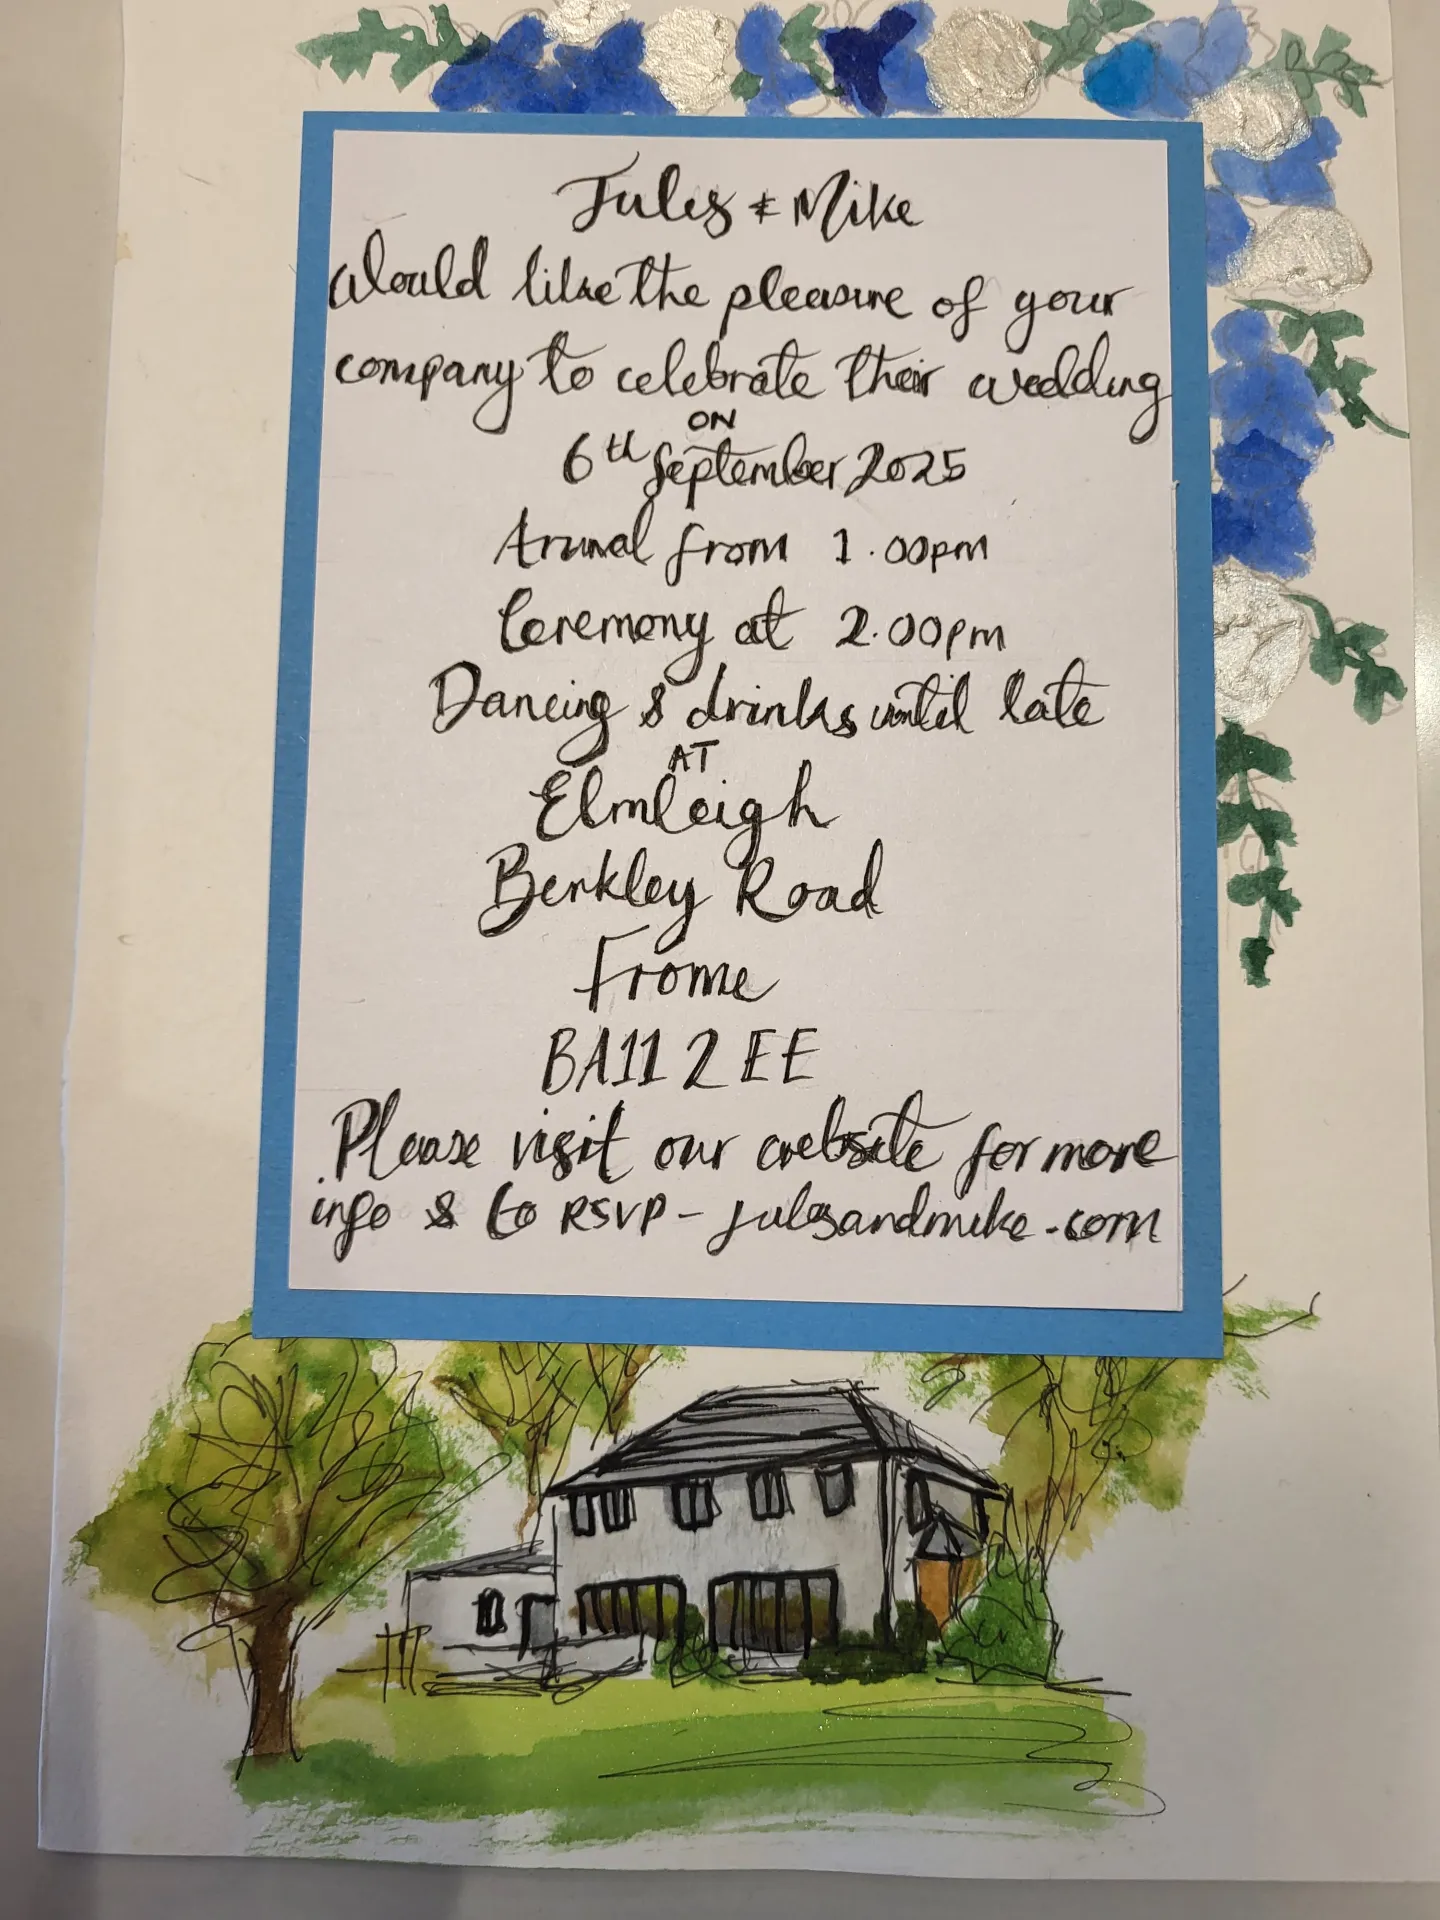 Jules & Mike
Would like the pleasure of your
company to celebrate their wedding
ON
6th September 2025
Arrival from 1.00pm
Ceremony at 2.00pm
Dancing & drinks until late
AT
Elmleigh
Berkley Road
Frome
BA11 2EE
Please visit our website for more
info & to RSVP - julesandmike.com